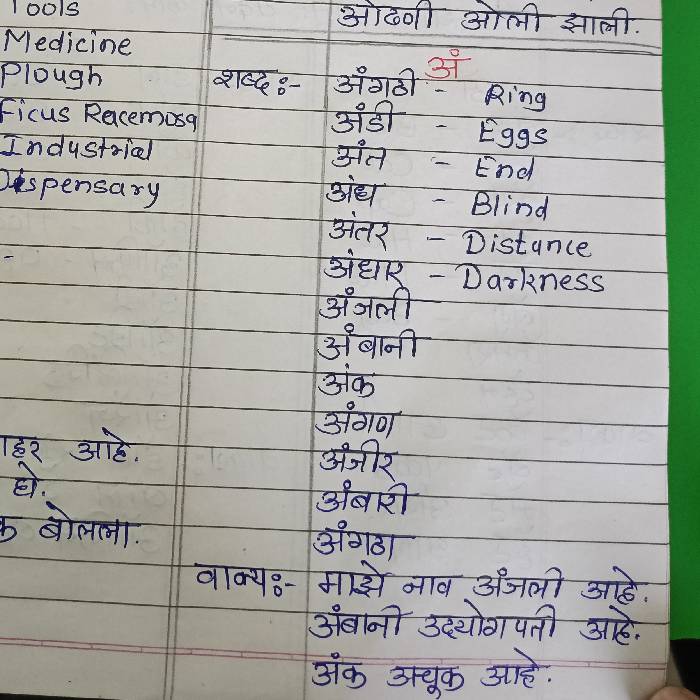 Tools
Medicine
Plough
Ficus Racemosa
Industrial
Dispensary
आहे.
घे.
बोलला.
ओढणी ओली झाली.
अं
शब्द:- अंगठी - Ring
अंडी - Eggs
अंत - End
अंध - Blind
अंतर - Distance
अंधार - Darkness
अंजली
अंबानी
अंक
अंगण
अंजीर
अंबारी
अंगठा
वाक्य:- माझे नाव अंजली आहे.
अंबानी उद्योगपती आहे.
अंक अचूक आहे.